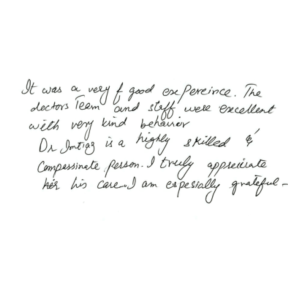 It was a very f good expereince. The
doctors Team and staff were excellent
with very kind behavior
Dr. Imtiaz is a highly skilled &
Compassinate person. I truly appreciate
his care. I am espesially grateful-